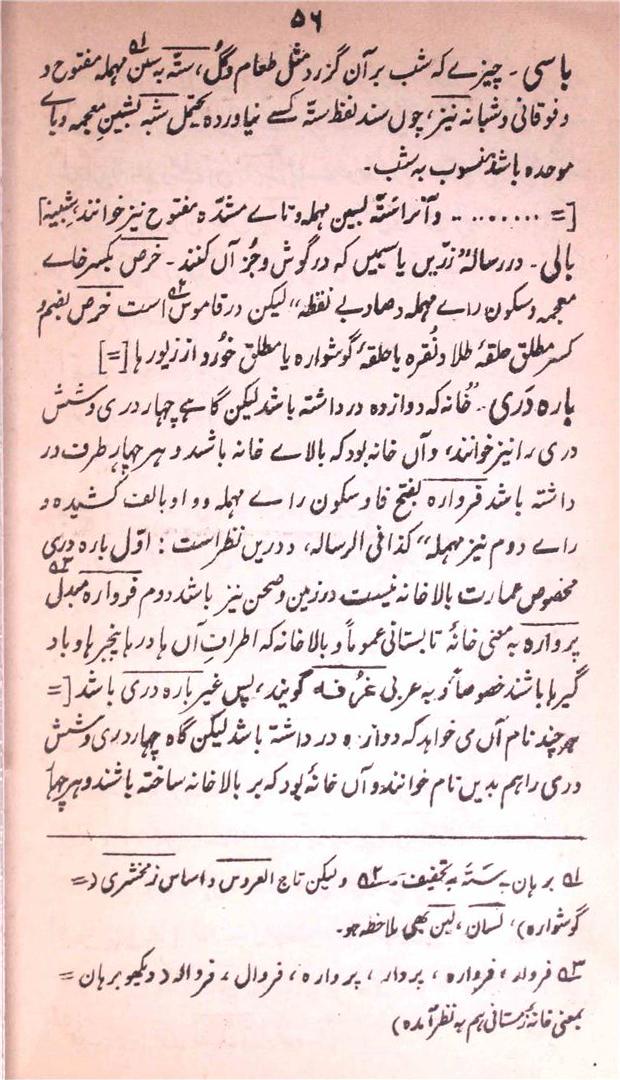 ۵۶
باسی ۔ چیزے کہ شب بر آن گزرد مثل طعام و گل، ستّہ بہ سین ۱؎ مہملہ مفتوح و
و فوقانی و شبانہ نیز، چوں سند لفظ ستّہ کسے نیاوردہ یحتمل شبہ بشینِ معجمہ و باے
موحدہ باشد منسوب بہ شب۔
[= ......... و آنرا ستّہ بسین مہملہ و تاے مشدّدہ مفتوح نیز خوانند، شبینہ]
بالی ۔ در رسالہ "زرّیں یا سیمیں کہ در گوش و جُز آں کنند ۔ خرص بکسر خاے
معجمہ و سکون راے مہملہ و صاد بے نقطہ" لیکن در قاموس ۲؎ است خرص بضم و
کسر مطلق حلقۂ طلا و نُقرہ یا حلقۂ گوشوارہ یا مطلق خورد از زیور ہا [=]
بارہ دَری ۔ "خانہ کہ دوازدہ در داشتہ باشد لیکن گاہے چہار دری و شش
دری را نیز خوانند، و آں خانہ بود کہ بالاے خانہ باشد و ہر چہار طرف در
داشتہ باشد فروارہ بفتح فا و سکون راے مہملہ و واو بالف کشیدہ و
راے دوم نیز مہملہ" کذا فی الرسالہ، و دریں نظر است : اوّل بارہ دری
مخصوص عمارت بالا خانہ نیست در زمین و صحن نیز باشد دوم فروارہ ۳؎ مبدل
پروارہ بہ معنی خانۂ تابستانی عموماً و بالا خانہ کہ اطرافِ آں ہا در ہا پنجر ہا و باد
گیر ہا باشند خصوصاً و بہ عربی غُرفہ گویند، پس غیر بارہ دری باشد [=
ہر چند نام آں می خواہد کہ دوازدہ در داشتہ باشد لیکن گاہ چہار دری و شش
دری را ہم بدیں نام خوانند و آں خانۂ بود کہ بر بالا خانہ ساختہ باشند و ہر چہا
۱؎ برہان ۔ سَتَہ بہ تخفیف ۔ ۲؎ و لیکن تاج العروس و اساس زمخشری (=
گوشوارہ)، لسان، لین بھی ملاحظہ ہو۔
۳؎ فروار، فروارہ، پروار، پروارہ، فروال، فروالہ (دیکھو برہان =
بمعنی خانۂ زمستانی ہم بہ نظر آمدہ)